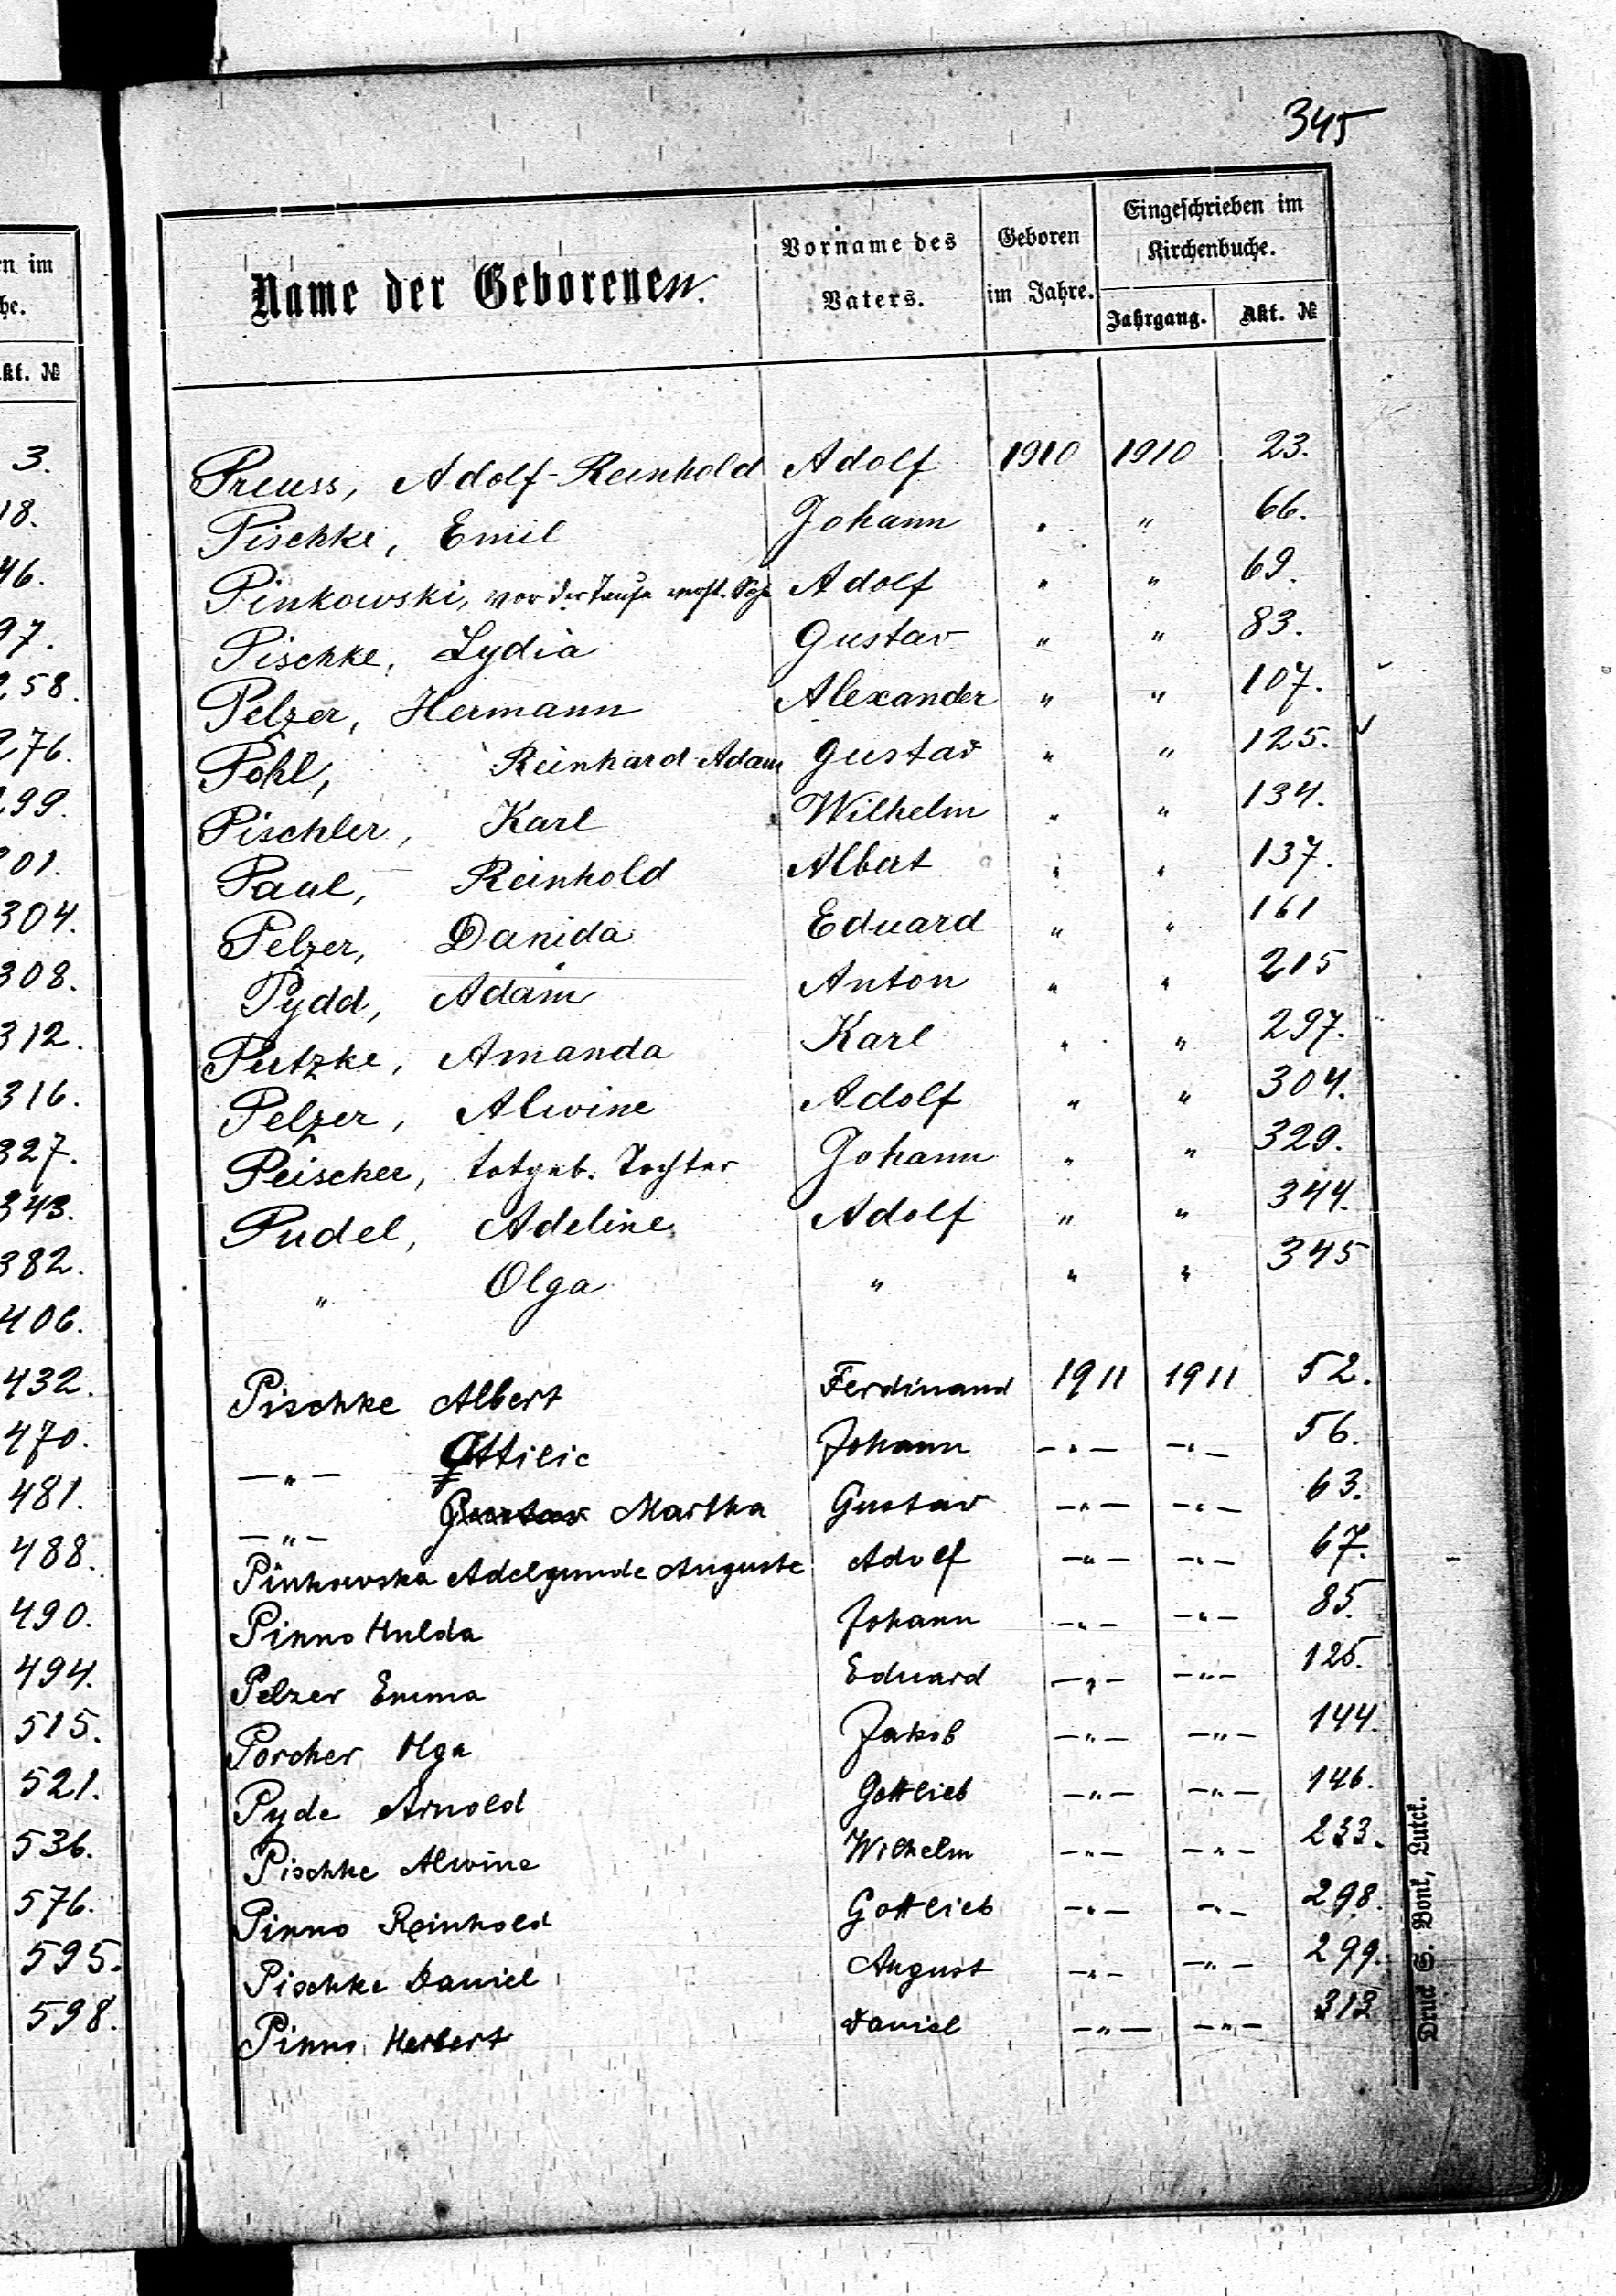 345
en im
he.
kt. №
3.
18.
46.
97.
258.
276.
299.
301.
304.
308.
312.
316.
327.
343.
382.
406.
432.
470.
481.
488.
490.
494.
515.
521.
536.
576.
595.
598.
Name der Geborenen. Vorname des Vaters. Geboren im Jahre. Eingeschrieben im Kirchenbuche. Jahrgang. Akt. №
Preuss, Adolf-Reinhold Adolf 1910 1910 23.
Pischke, Emil Johann " " 66.
Pinkowski, vor der Taufe verst. Adolf " " 69.
Pischke, Lydia Gustav " " 83.
Pelzer, Hermann Alexander " " 107.
Pohl, Reinhard-Adam Gustav " " 125.
Pischler, Karl Wilhelm " " 134.
Paul, Reinhold Albert " " 137.
Pelzer, Danida Eduard " " 161
Pydd, Adam Anton " " 215
Putzke, Amanda Karl " " 297.
Pelzer, Alwine Adolf " " 304.
Peischer, totgeb. Tochter Johann " " 329.
Pudel, Adeline Adolf " " 344.
" Olga " " " 345
Pischke Albert Ferdinand 1911 1911 52.
—"— Ottilie Johann —"— —"— 56.
—"— Gustav Martha Gustav —"— —"— 63.
Pinkowska Adelgunde Auguste Adolf —"— —"— 67.
Pinno Hulda Johann —"— —"— 85.
Pelzer Emma Eduard —"— —"— 125.
Porcher Olga Jakob —"— —"— 144.
Pyde Arnold Gottlieb —"— —"— 146.
Pischke Alwine Wilhelm —"— —"— 233.
Pinno Reinhold Gottlieb —"— —"— 298.
Pischke Daniel August —"— —"— 299.
Pinno Herbert Daniel —"— —"— 313
Druck S. Bonk, Lutck.